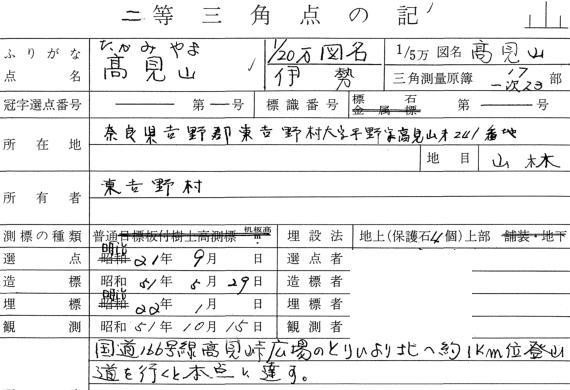 二等三角点の記
ふりがな たかみやま
点名 高見山
1/20万図名 伊勢
1/5万 図名 高見山
三角測量原簿 17 一次23 部
冠字選点番号 ── 第 ─ 号 標識番号 標石 金属標 ── 第 ─ 号
所在地 奈良県吉野郡東吉野村大字平野字高見山才241番地
地目 山林
所有者 東吉野村
測標の種類 普通目標板付樹上高測標 機械高 m
埋設法 地上(保護石4個)上部 舗装・地下
選点 明治 昭和 21年 9月 日 選点者
造標 昭和 51年 5月 29日 造標者
埋標 明治 昭和 22年 1月 日 埋標者
観測 昭和 51年 10月 15日 観測者
国道166号線高見峠広場のとりいより北へ約1Km位登山
道を行くと本点に達す。